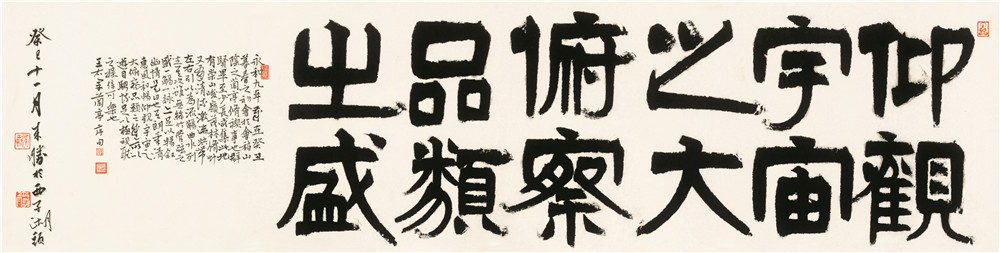 仰觀
宇宙
之大
俯察
品類
之盛
永和九年歲在癸丑
暮春之初會於會稽山
陰之蘭亭脩禊事也群
賢畢至少長咸集此地
有崇山峻領茂林脩竹
又有清流激湍映帶
左右引以為流觴曲水列
坐其次雖無絲竹管弦之
盛一觴一詠亦足以暢敘
幽情是日也天朗氣清
惠風和暢仰觀宇宙之
大俯察品類之盛所以
遊目騁懷足以極視聽
之娛信可樂也
王右軍蘭亭序句
癸巳十一月勝於西子湖